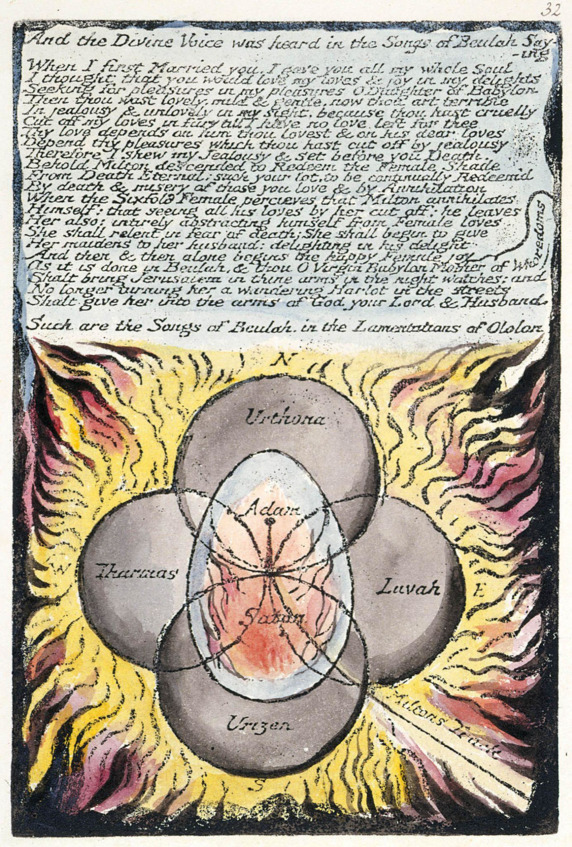 32
And the Divine Voice was heard in the Songs of Beulah Say-
-ing
When I first Married you, I gave you all my whole Soul
I thought that you would love my loves & joy in my delights
Seeking for pleasures in my pleasures O Daughter of Babylon
Then thou wast lovely, mild & gentle, now thou art terrible
In jealousy & unlovely in my sight, because thou hast cruelly
Cut off my loves in fury till I have no love left for thee
Thy love depends on him thou lovest & on his dear loves
Depend thy pleasures which thou hast cut off by jealousy
Therefore I shew my Jealousy & set before you Death.
Behold Milton descended to Redeem the Female Shade
From Death Eternal; such your lot, to be continually Redeem'd
By death & misery of those you love & by Annihilation
When the Sixfold Female percieves that Milton annihilates
Himself: that seeing all his loves by her cut off: he leaves
Her also: intirely abstracting himself from Female loves
She shall relent in fear of death: She shall begin to give
Her maidens to her husband: delighting in his delight
And then & then alone begins the happy Female joy
As it is done in Beulah, & thou O Virgin Babylon Mother of Whoredoms
Shalt bring Jerusalem in thine arms in the night watches; and
No longer turning her a wandering Harlot in the streets
Shalt give her into the arms of God your Lord & Husband.
Such are the Songs of Beulah in the Lamentations of Ololon
N
Urthona
Adam
W
Tharmas
Luvah
E
Satan
Miltons Track
Urizen
S